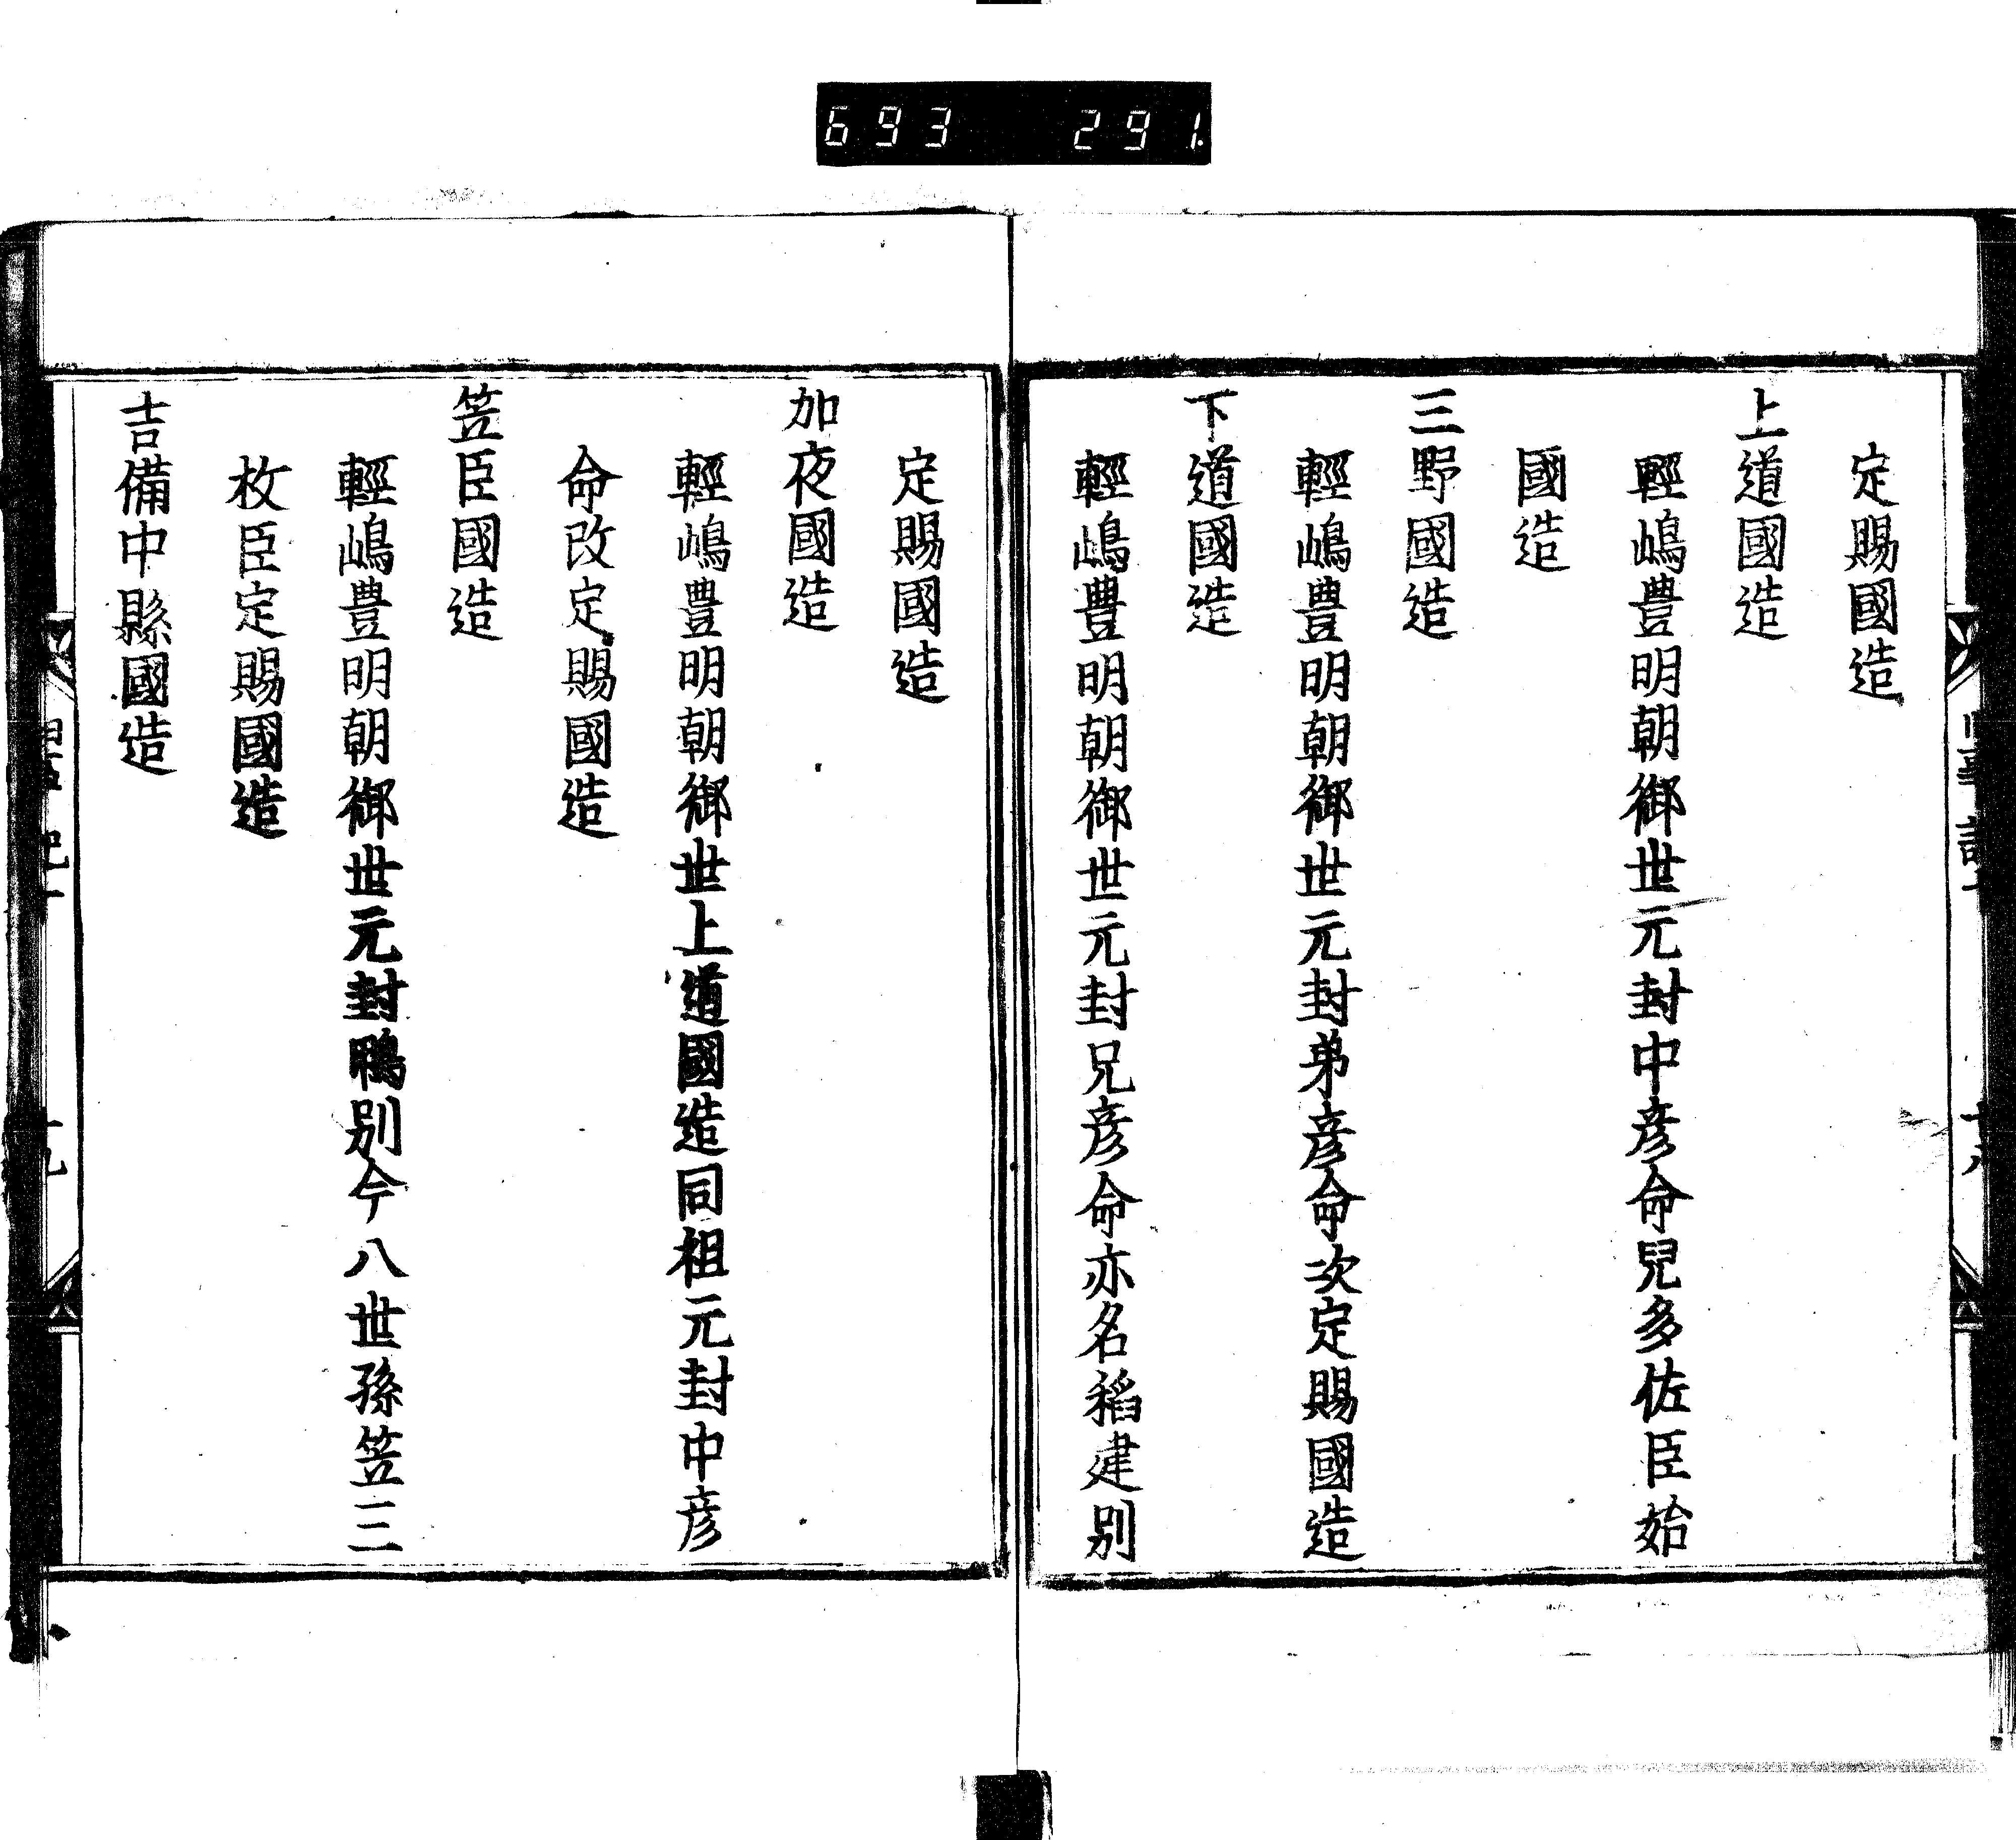 693 291
定賜國造
上道國造
輕嶋豊明朝御世元封中彦命兒多佐臣始
國造
三野國造
輕嶋豊明朝御世元封弟彦命次定賜國造
下道國造
輕嶋豊明朝御世元封兄彦命亦名稻建別
定賜國造
加夜國造
輕嶋豊明朝御世上道國造同祖元封中彦
命改定賜國造
笠臣國造
輕嶋豊明朝御世元封鴨別今八世孫笠三
枚臣定賜國造
吉備中縣國造